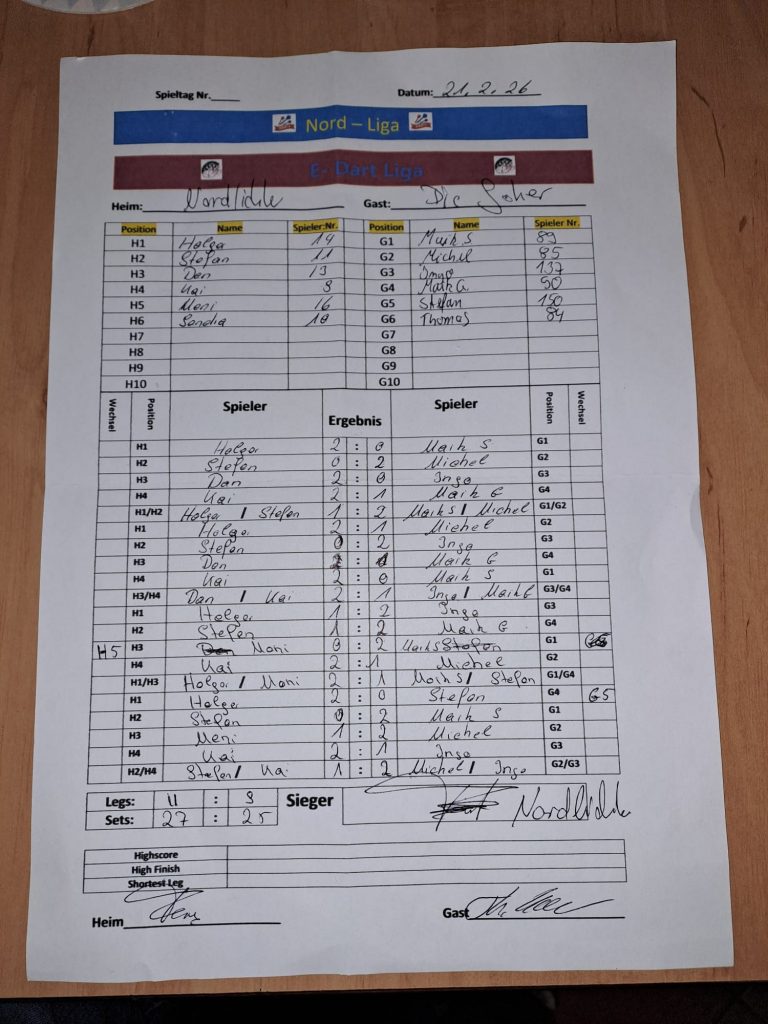 Spieltag Nr. Datum: 21.2.26
Nord – Liga
E- Dart Liga
Heim: Nordlichter Gast: Die Zocker
Position Name Spieler.Nr. Position Name Spieler Nr.
H1 Holger 14 G1 Maik S 89
H2 Stefan 11 G2 Michel 85
H3 Dan 13 G3 Ingo 137
H4 Kai 9 G4 Maik G. 90
H5 Moni 16 G5 Stefan 150
H6 Sandra 18 G6 Thomas 84
H7 G7
H8 G8
H9 G9
H10 G10
Wechsel Position Spieler Ergebnis Spieler Position Wechsel
H1 Holger 2 : 0 Maik S G1
H2 Stefan 0 : 2 Michel G2
H3 Dan 2 : 0 Ingo G3
H4 Kai 2 : 1 Maik G G4
H1/H2 Holger / Stefan 1 : 2 Maik S / Michel G1/G2
H1 Holger 2 : 1 Michel G2
H2 Stefan 0 : 2 Ingo G3
H3 Dan 2 : 1 Maik G G4
H4 Kai 2 : 0 Maik S G1
H3/H4 Dan / Kai 2 : 1 Ingo / Maik G G3/G4
H1 Holger 1 : 2 Ingo G3
H2 Stefan 1 : 2 Maik G G4
H5 H3 Moni 0 : 2 Maik S G1
H4 Kai 2 : 1 Michel G2
H1/H3 Holger / Moni 2 : 1 Maik S / Stefan G1/G4
H1 Holger 2 : 0 Stefan G4 G5
H2 Stefan 0 : 2 Maik S G1
H3 Moni 1 : 2 Michel G2
H4 Kai 2 : 1 Ingo G3
H2/H4 Stefan / Kai 1 : 2 Michel / Ingo G2/G3
Legs: 11 : 9 Sieger Nordlichter
Sets: 27 : 25
Highscore
High Finish
Shortest Leg
Heim Gast